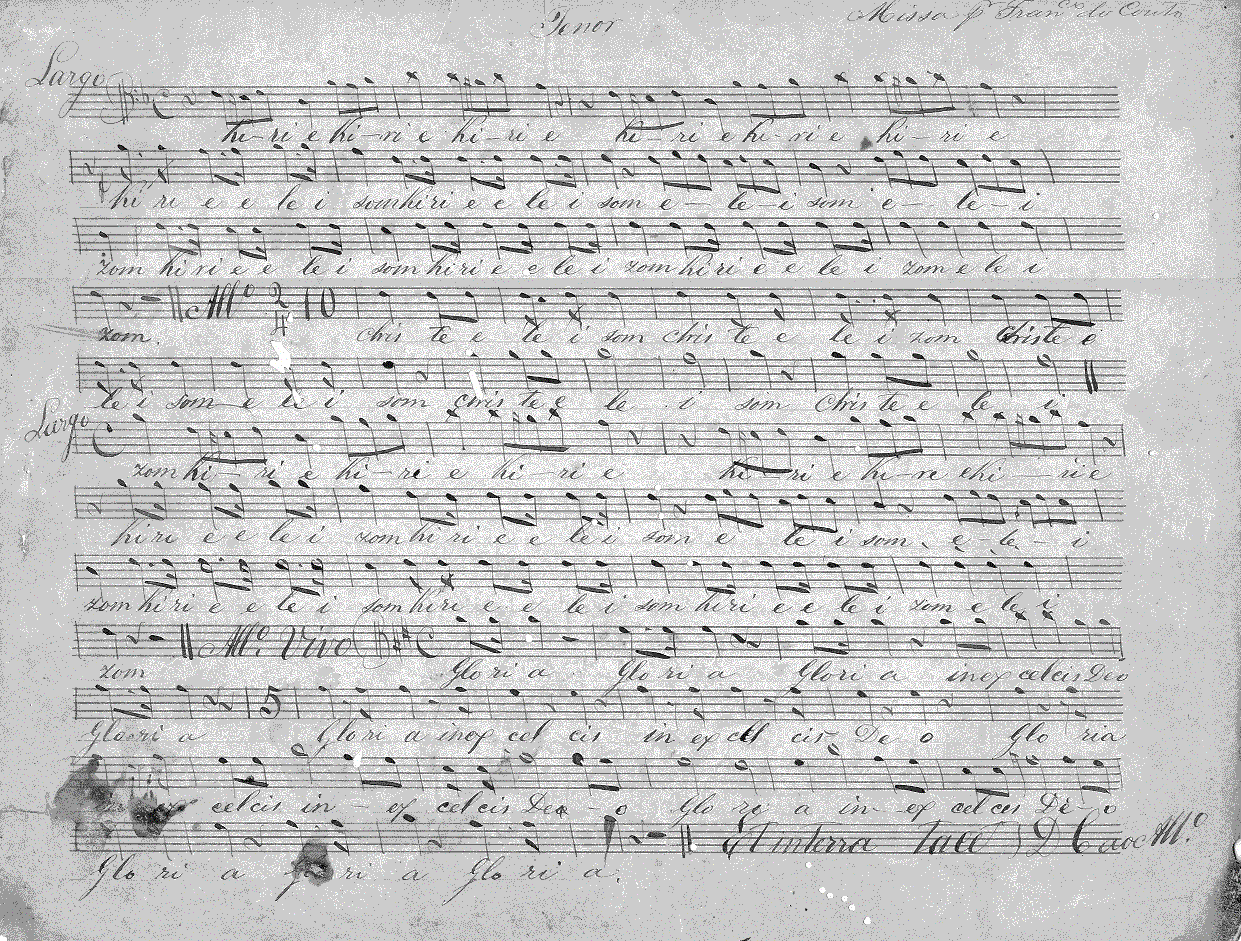 Tenor
Missa p Fran.co do Couto
Largo
ki-ri e ki-ri e ki-ri e ki-ri e ki-ri e ki-ri e
ki ri e e le i som kiri e e le i som e-le-i som e-le-i
zom ki ri e e le i som kiri e e le i zom ki ri e e le i zom e le i
All.o 2/4 10
zom. Chris te e le i som chris te e le i zom Christe e
le i som e le i som chris te e le i som Chris te e le i
Largo
zom ki-ri e ki-ri e ki-ri e ki-ri e ki re e ki-rie
ki ri e e le i zom ki ri e e le i som e le i som e-le-i
zom ki ri e e le i som kiri e e le i som kiri e e le i zom e le i
All.o Vivo
zom Glo ri a Glo ri a Glori a inex celcis Deo
5
Glo ri a Glo ri a inex cel cis in ex cel cis De o Glo ria
celcis in-ex celcis Deo-o Glo ri a in-ex cel cis De-o
Et interra tacet D C ao All.o
Glo ri a Glo ri a Glo ri a.